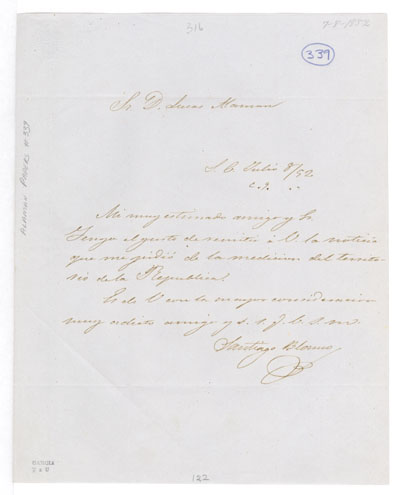 316
7-8-1852
339
Sr D. Lucas Alaman
S. C. Julio 8/52
Mi muy estimado amigo y Sr
Tengo el gusto de remitir á V. la noticia
que me pidió de la medicion del territo-
rio de la Republica.
Es de V con la mayor consideracion
muy adicto amigo y s. s. q. b. s. m.
Santiago Blanco
122